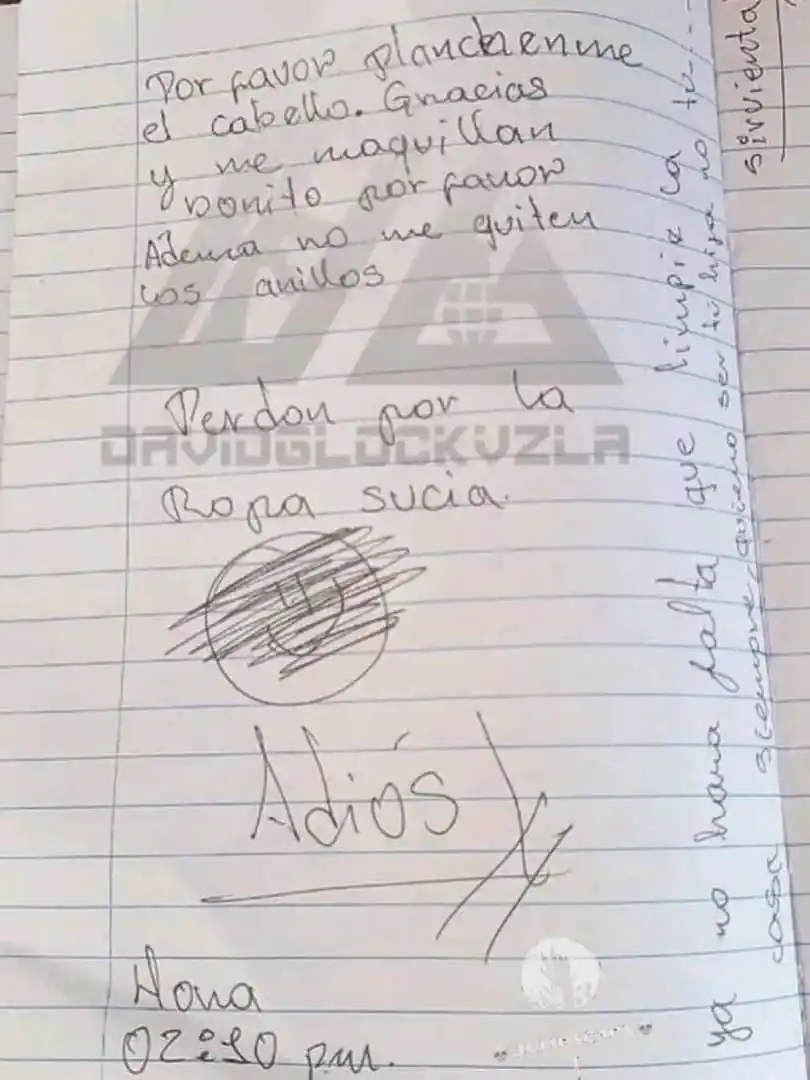 Por favor planchenme
el cabello. Gracias
y me maquillan
bonito por favor
Ademá no me quiten
los anillos
Perdon por la
Ropa sucia.
Adiós
Hora
02:10 pm.
ya no hara falta que limpie la tu...
casa siempre, quieno ser tu hija no tu
sirvienta
DAVIDGLOCKVZLA